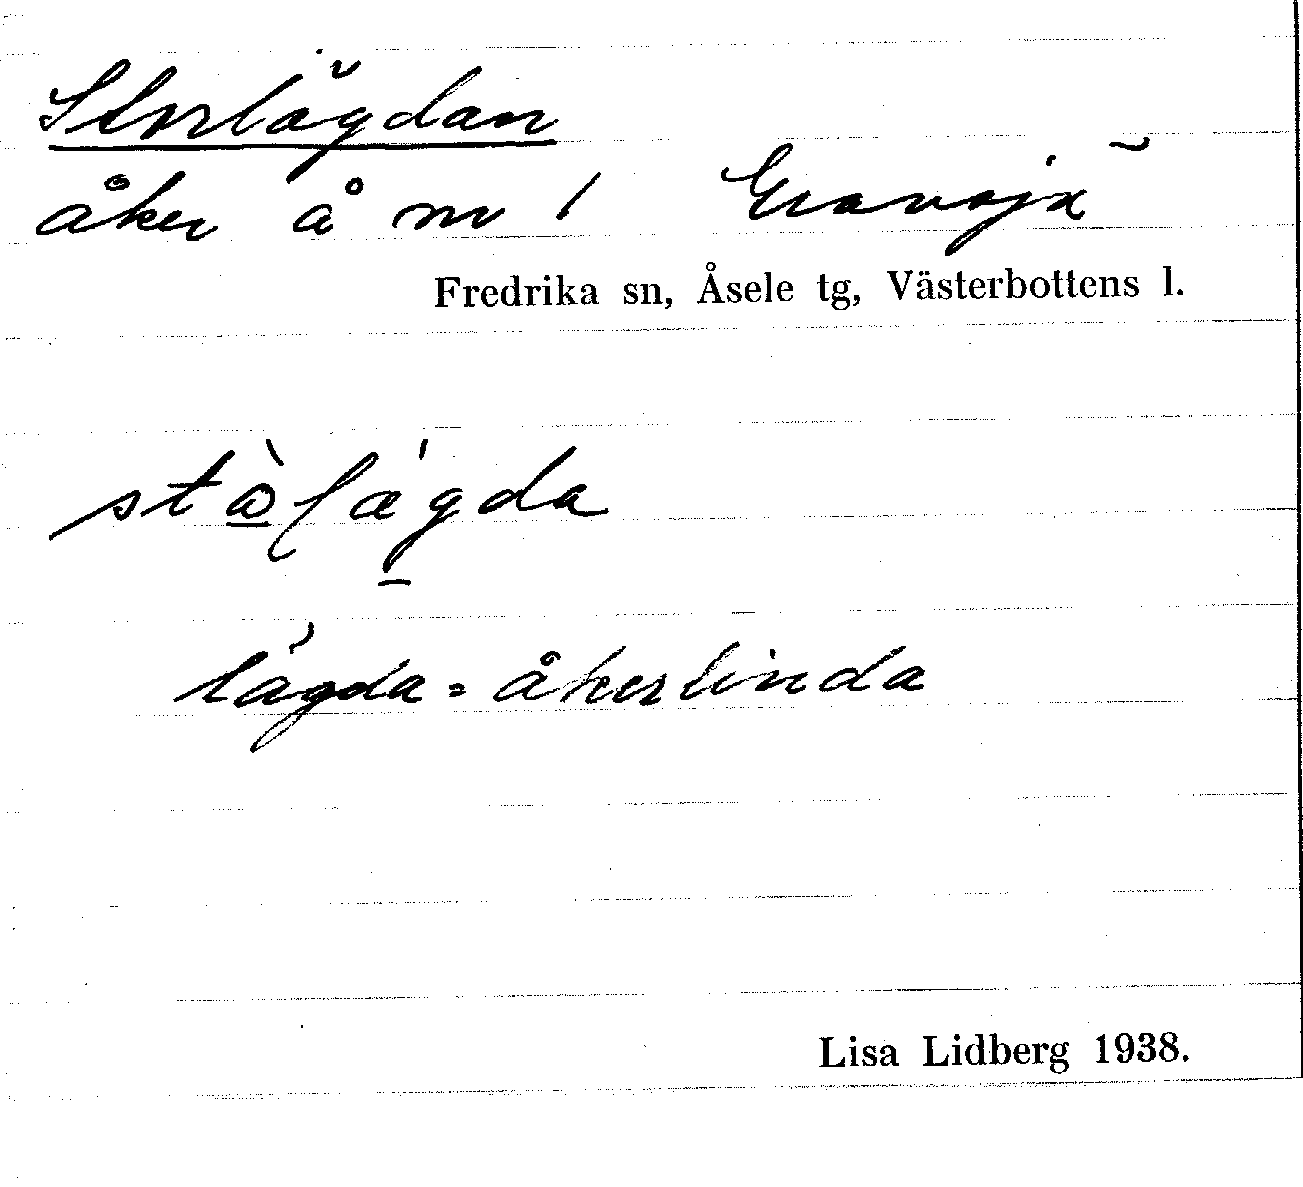 Storlägdan
åker å nr 1 Gravsjö
Fredrika sn, Åsele tg, Västerbottens l.
lägda = åkerlinda
Lisa Lidberg 1938.